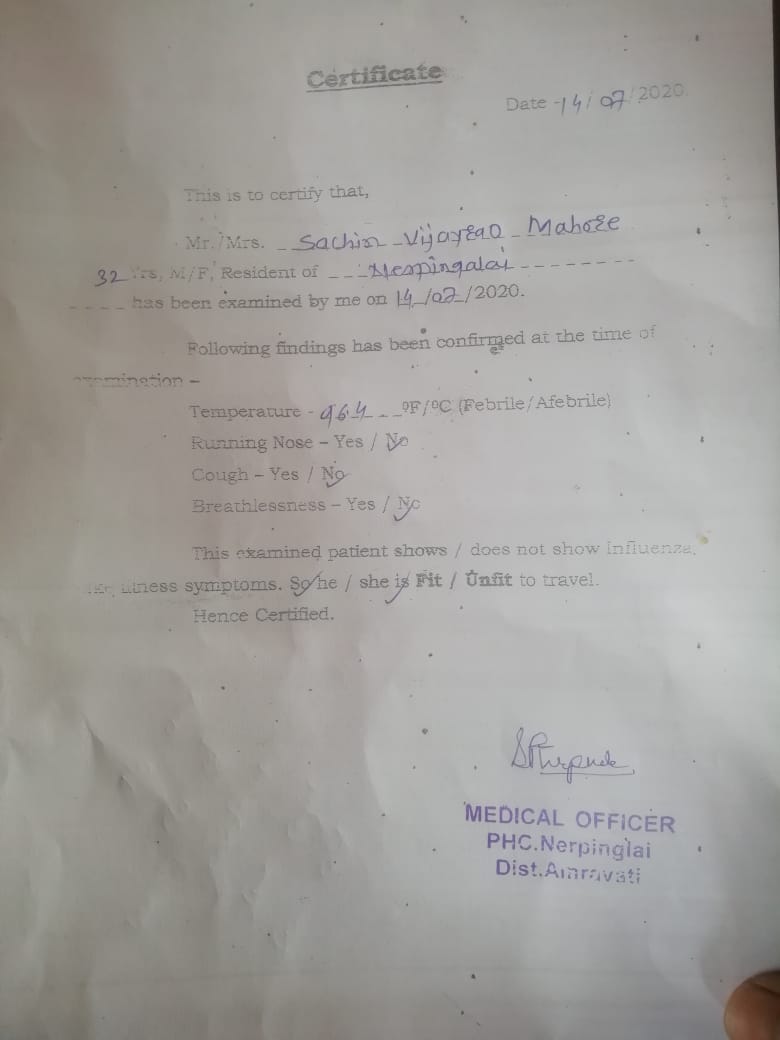 Certificate
Date - 14/07/2020.
This is to certify that,
Mr./Mrs. Sachin Vijayrao Mahore
32 Yrs, M/F, Resident of Nerpingalai
has been examined by me on 14/07/2020.
Following findings has been confirmed at the time of
examination –
Temperature - 96.4 ºF/ºC (Febrile/Afebrile)
Running Nose – Yes / No
Cough – Yes / No
Breathlessness – Yes / No
This examined patient shows / does not show Influenza
like illness symptoms. So he / she is Fit / Unfit to travel.
Hence Certified.
MEDICAL OFFICER
PHC.Nerpinglai
Dist.Amravati